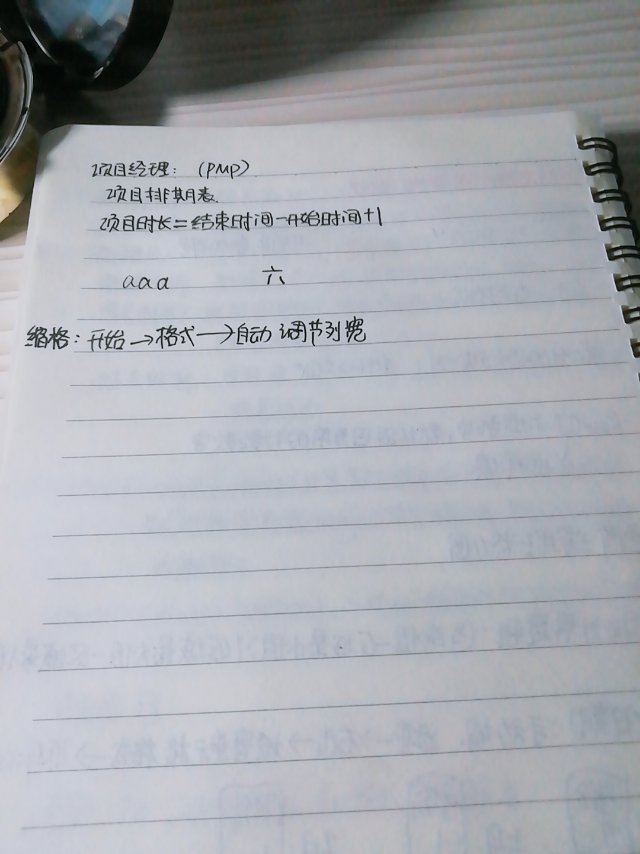 项目经理：（PMP）
项目排期表
项目时长=结束时间-开始时间+1
aaa 六
缩格：开始→格式→自动调节列宽